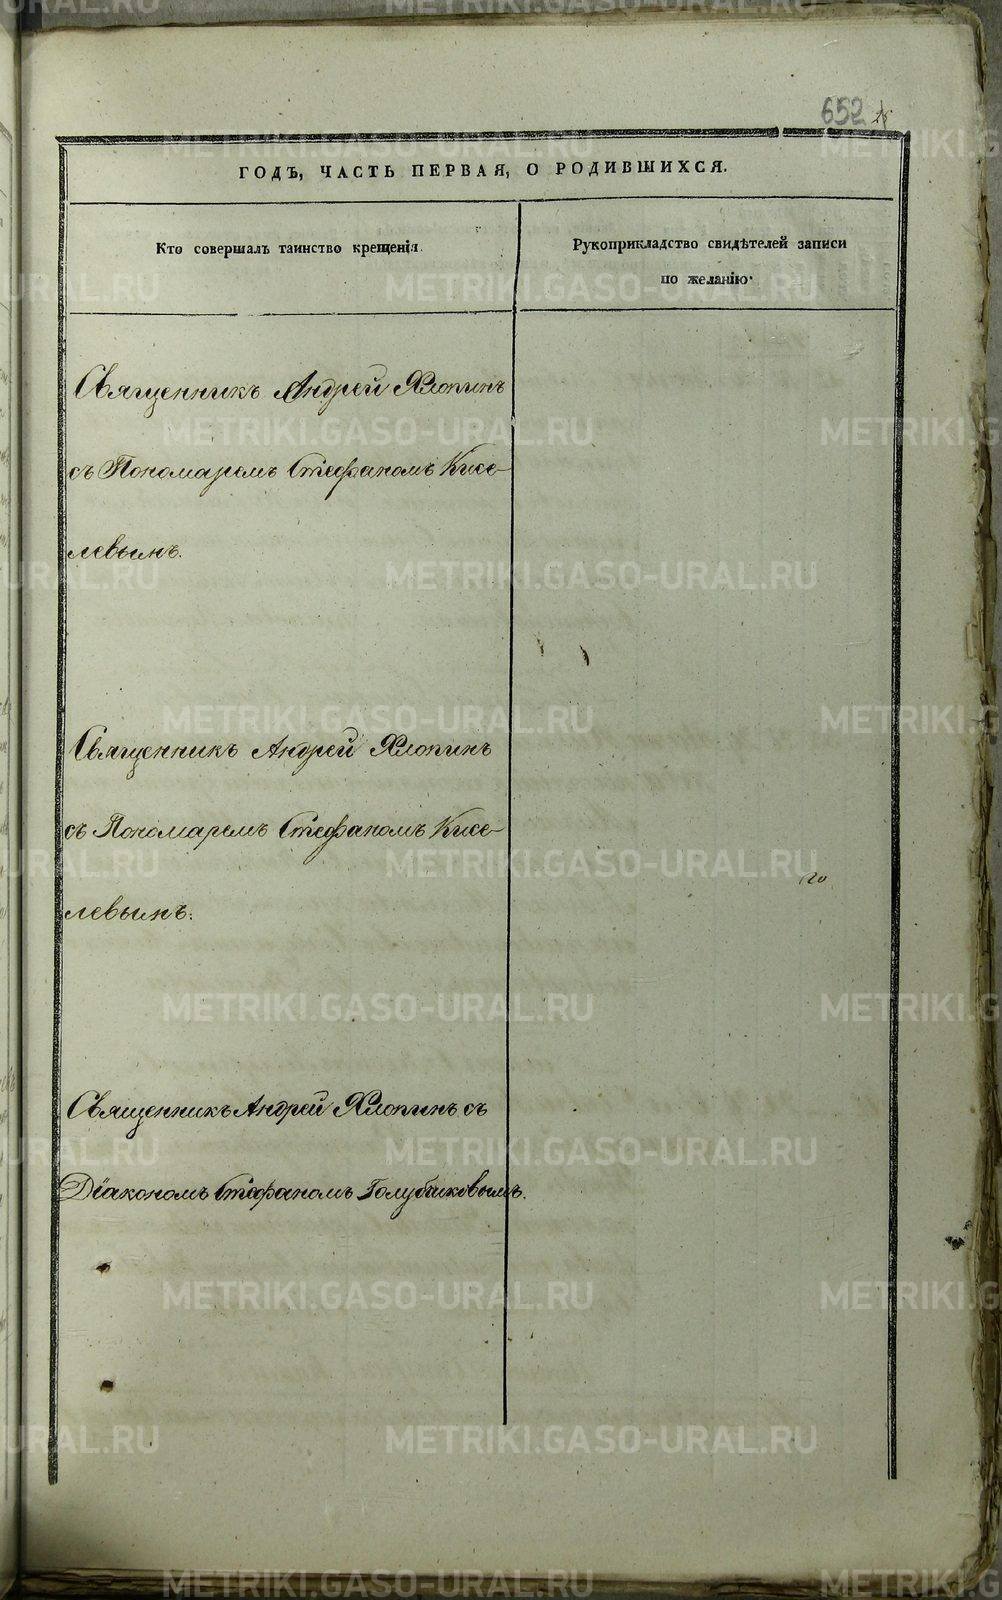 652
ГОДЪ, ЧАСТЬ ПЕРВАЯ, О РОДИВШИХСЯ.
Кто совершалъ таинство крещенія.
Рукоприкладство свидѣтелей записи
по желанію.
Священникъ Андрей Хлопинъ
съ Пономаремъ Стефаномъ Кисе-
левымъ.
Священникъ Андрей Хлопинъ
съ Пономаремъ Стефаномъ Кисе-
левымъ.
Священникъ Андрей Хлопинъ съ
Діакономъ Стефаномъ Голубчиковымъ.
METRIKI.GASO-URAL.RU